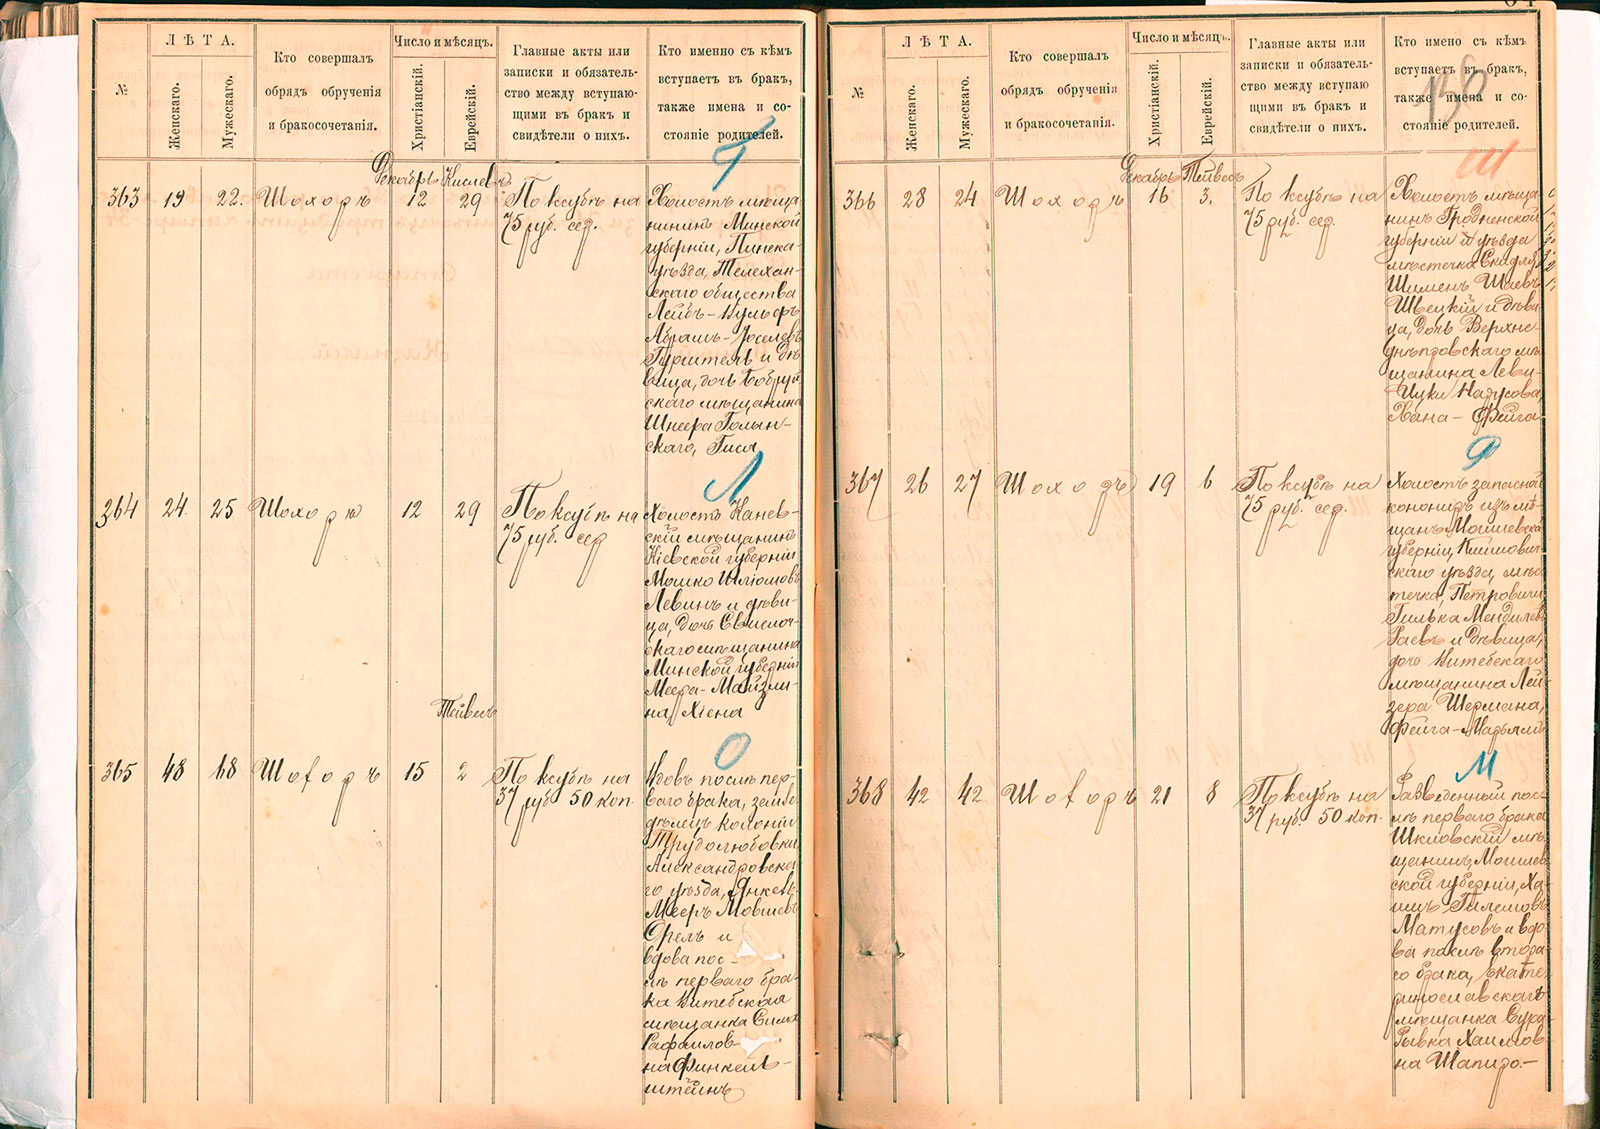 №
ЛѢТА.
Женскаго.
Мужескаго.
Кто совершалъ
обрядъ обрученія
и бракосочетанія.
Число и мѣсяцъ.
Христіанскій.
Еврейскій.
Главные акты или
записки и обязатель-
ство между вступаю-
щими въ бракъ и
свидѣтели о нихъ.
Кто именно съ кѣмъ
вступаетъ въ бракъ,
также имена и со-
стояніе родителей.
Г
Декабрь Кислевъ
363 19 22. Шохоръ 12 29
По ксубѣ на
75 руб. сер.
Холостъ мѣща
нинъ Минской
губерніи, Пинска
уѣзда, Телехан-
скаго общества
Лейбъ-Вульфъ
Абрамъ-Іоселевъ
Гурштель и дѣ
вица, дочь Бобруй
скаго мѣщанина
Шнеера Голын-
скаго, Гися
Л
264 24 25 Шохоръ 12 29
По ксубѣ на
75 руб. сер
Холостъ Канев-
скій мѣщанинъ
Кіевской губерніи
Мошко Шліомовъ
Левинъ и дѣви-
ца, дочь
скаго мѣщанина
Минской губерніи
Меера-Майзли-
на Хіена
Тейвесъ
О
365 48 68 Шохоръ 15 2
По ксубѣ на
37 руб 50 коп.
Вдовъ послѣ пер-
ваго брака, земле
дѣлецъ колоніи
Трудолюбовки
Александровска
го уѣзда, Янкевъ-
Мееръ Мовшевъ
Орелъ и
вдова пос-
лѣ перваго бра-
ка Витебская
мѣщанка Сима
Рафаилов-
на Финкель-
штейнъ
№
ЛѢТА.
Женскаго.
Мужескаго.
Кто совершалъ
обрядъ обрученія
и бракосочетанія.
Число и мѣсяцъ.
Христіанскій.
Еврейскій.
Главные акты или
записки и обязатель-
ство между вступаю
щими въ бракъ и
свидѣтели о нихъ.
Кто имено съ кѣмъ
вступаетъ въ бракъ,
также имена и со-
стояніе родителей.
Ш
Декабрь Тейвесъ
366 28 24 Шохоръ 16 3.
По ксубѣ на
75 руб. сер.
Холостъ мѣща
нинъ Гродненской
губерніи и уѣзда
мѣстечка Скидля
Шименъ Шаевъ
Швецкій и дѣви
ца, дочь Верхне-
днѣпровскаго мѣ
щанина Леви-
Ицки Надусова,
Хана-Фейга
Р
367 26 27 Шохоръ 19 6
По ксубѣ на
75 руб. сер.
Холостъ запасной
канониръ изъ мѣ
щанъ Могилевска
губерніи, Климович
скаго уѣзда, мѣс
течка Петровичи
Гилька Менделевъ
Раевъ и дѣвица,
дочь Витебскаго
мѣщанина Лей
зера Шермана,
Фейга-Марьямъ
М
368 42 42 Шохоръ 21 8
По ксубѣ на
37 руб. 50 коп.
Разведенный пос-
лѣ перваго брака
Шкловскій мѣ
щанинъ Могилев
ской губерніи, Ха-
имъ Гилемовъ
Матусовъ и вдо
ва послѣ втора-
го брака, екате
ринославская
мѣщанка Сура
Рывка Хаимов
на Шапиро.-